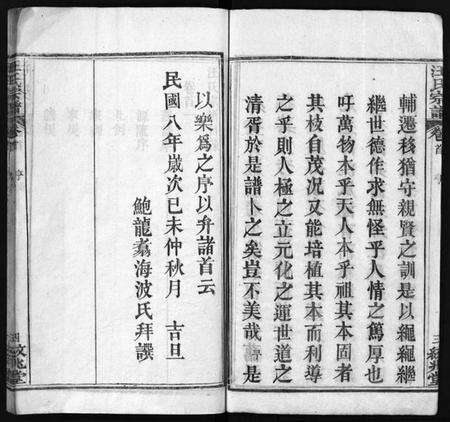 汪氏宗譜
卷首
序
輔遷移猶守親賢之訓是以繩繩繼
繼世德作求無怪乎人情之篤厚也
吁萬物本乎天人本乎祖其本固者
其枝自茂况又能培植其本而利導
之乎則人極之立元化之運世道之
清胥於是譜卜之矣豈不美哉 是
以樂為之序以弁諸首云
民國八年歲次己未仲秋月 吉旦
鮑龍翥海波氏拜譔